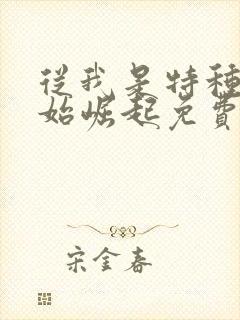 從我是特種
始崛起免費
宋金春